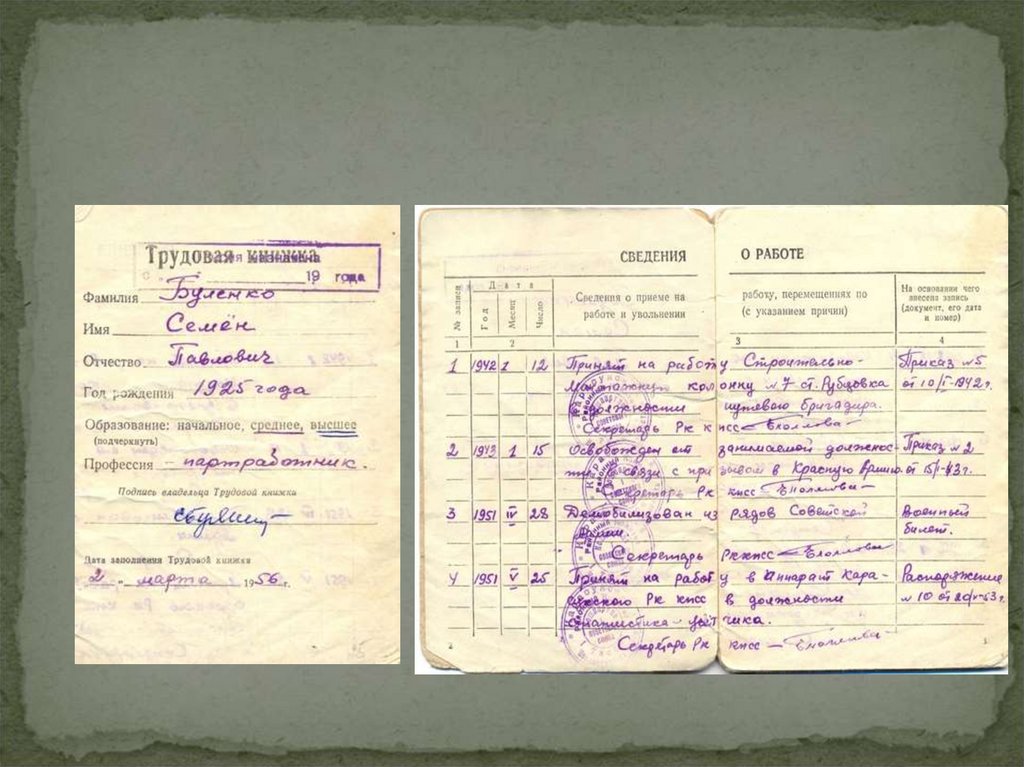 Трудовая книжка
назначена
19 года
Фамилия Буленко
Имя Семён
Отчество Павлович
Год рождения 1925 года
Образование: начальное, среднее, высшее
(подчеркнуть)
Профессия – партработник.
Подпись владельца Трудовой книжки
Дата заполнения Трудовой книжки
2 "–" марта 1956 г.
СВЕДЕНИЯ О РАБОТЕ
№ записи
Дата
Год
Месяц
Число
Сведения о приеме на работу, перемещениях по
работе и увольнении (с указанием причин)
На основании чего
внесена запись
(документ, его дата
и номер)
1 2 3 4
1 1942 1 12 Принят на работу Строительно- Приказ №5
монтажную колонну №7 ст. Рубцовка от 10/I-1942г.
должности путевого бригадира.
Секретарь Рк кпсс
2 1943 1 15 Освобожден от занимаемой должнос- Приказ №2
связи с призывом в Красную Армию от 15/I-43г.
Секретарь Рк кпсс
3 1951 IV 28 Демобилизован из рядов Советской Военный
Армии. билет.
Секретарь Рк кпсс
4 1951 V 25 Принят на работу в Аппарат Кара- Распоряжение
Рк кпсс в должности №10
статистика-учётчика.
Секретарь Рк кпсс